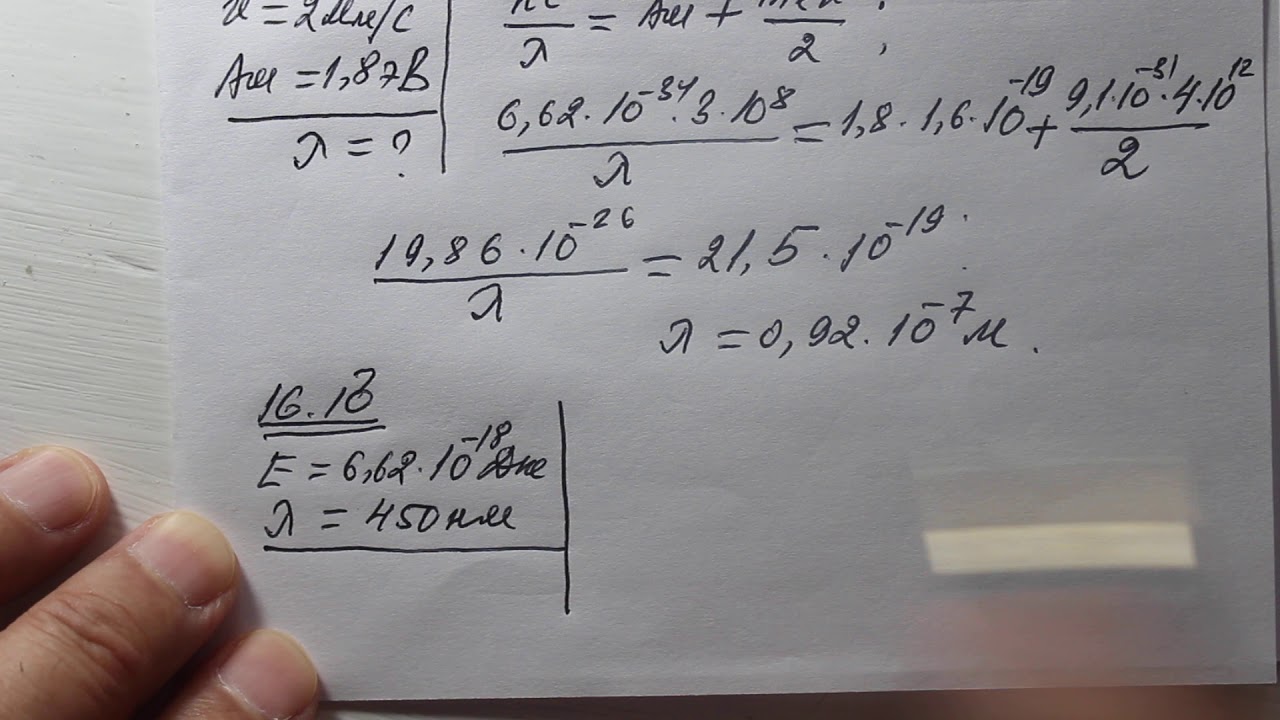 u = 2Мм/с
Aвых = 1,8эВ
λ = ?
hc/λ = Aвых + mu²/2 ;
6,62·10⁻³⁴·3·10⁸/λ = 1,8·1,6·10⁻¹⁹ + 9,1·10⁻³¹·4·10¹²/2
19,86·10⁻²⁶/λ = 21,5·10⁻¹⁹.
λ = 0,92·10⁻⁷м.
16.18
E = 6,62·10⁻¹⁸ Дж
λ = 450нм